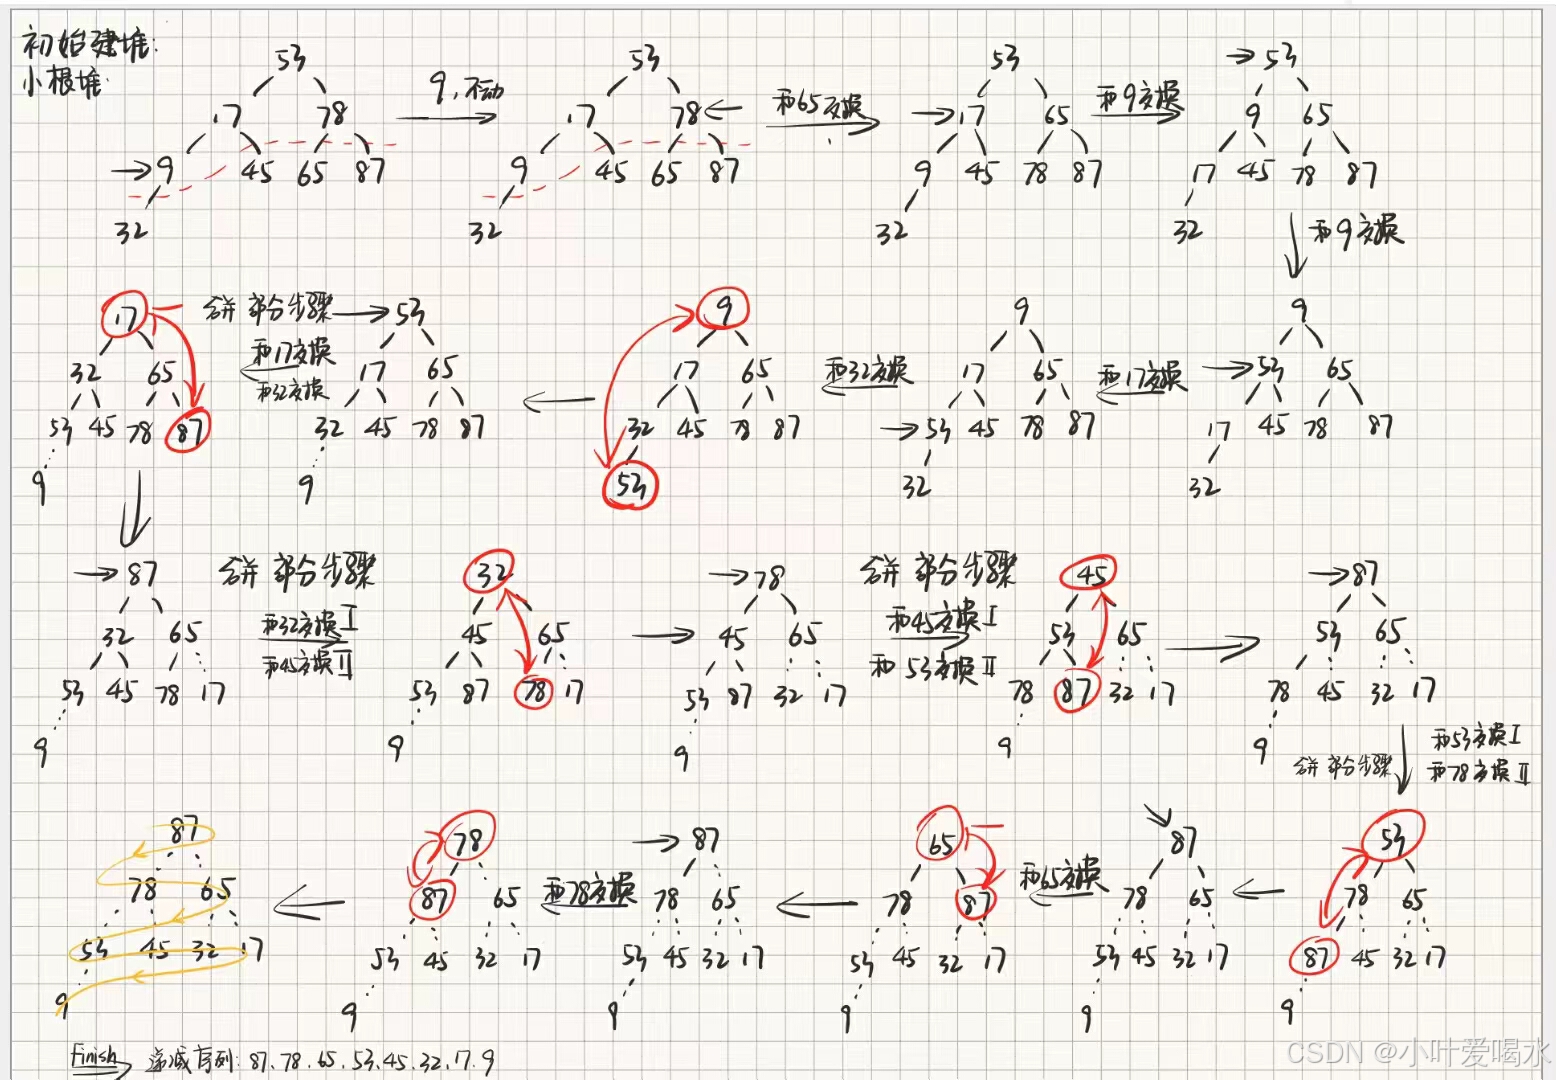 初始建堆:
小根堆
53
17 78
9 45 65 87
32
9,不动
53
17 78
9 45 65 87
32
和65交换
53
17 65
9 45 78 87
32
和9交换
53
9 65
17 45 78 87
32
和9交换
9
53 65
17 45 78 87
32
和17交换
9
17 65
53 45 78 87
32
和32交换
9
17 65
32 45 78 87
53
53
17 65
32 45 78 87
9
合并部分步骤
和17交换
和32交换
17
32 65
53 45 78 87
9
87
32 65
53 45 78 17
9
合并部分步骤
和32交换I
和45交换II
32
45 65
53 87 78 17
9
78
45 65
53 87 32 17
9
合并部分步骤
和45交换I
和53交换II
45
53 65
78 87 32 17
9
87
53 65
78 45 32 17
9
合并部分步骤
和53交换I
和78交换II
53
78 65
87 45 32 17
9
87
78 65
53 45 32 17
9
和65交换
65
78 87
53 45 32 17
9
87
78 65
53 45 32 17
9
和78交换
78
87 65
53 45 32 17
9
87
78 65
53 45 32 17
9
Finish 递减序列:87、78、65、53、45、32、17、9
CSDN @小叶爱喝水